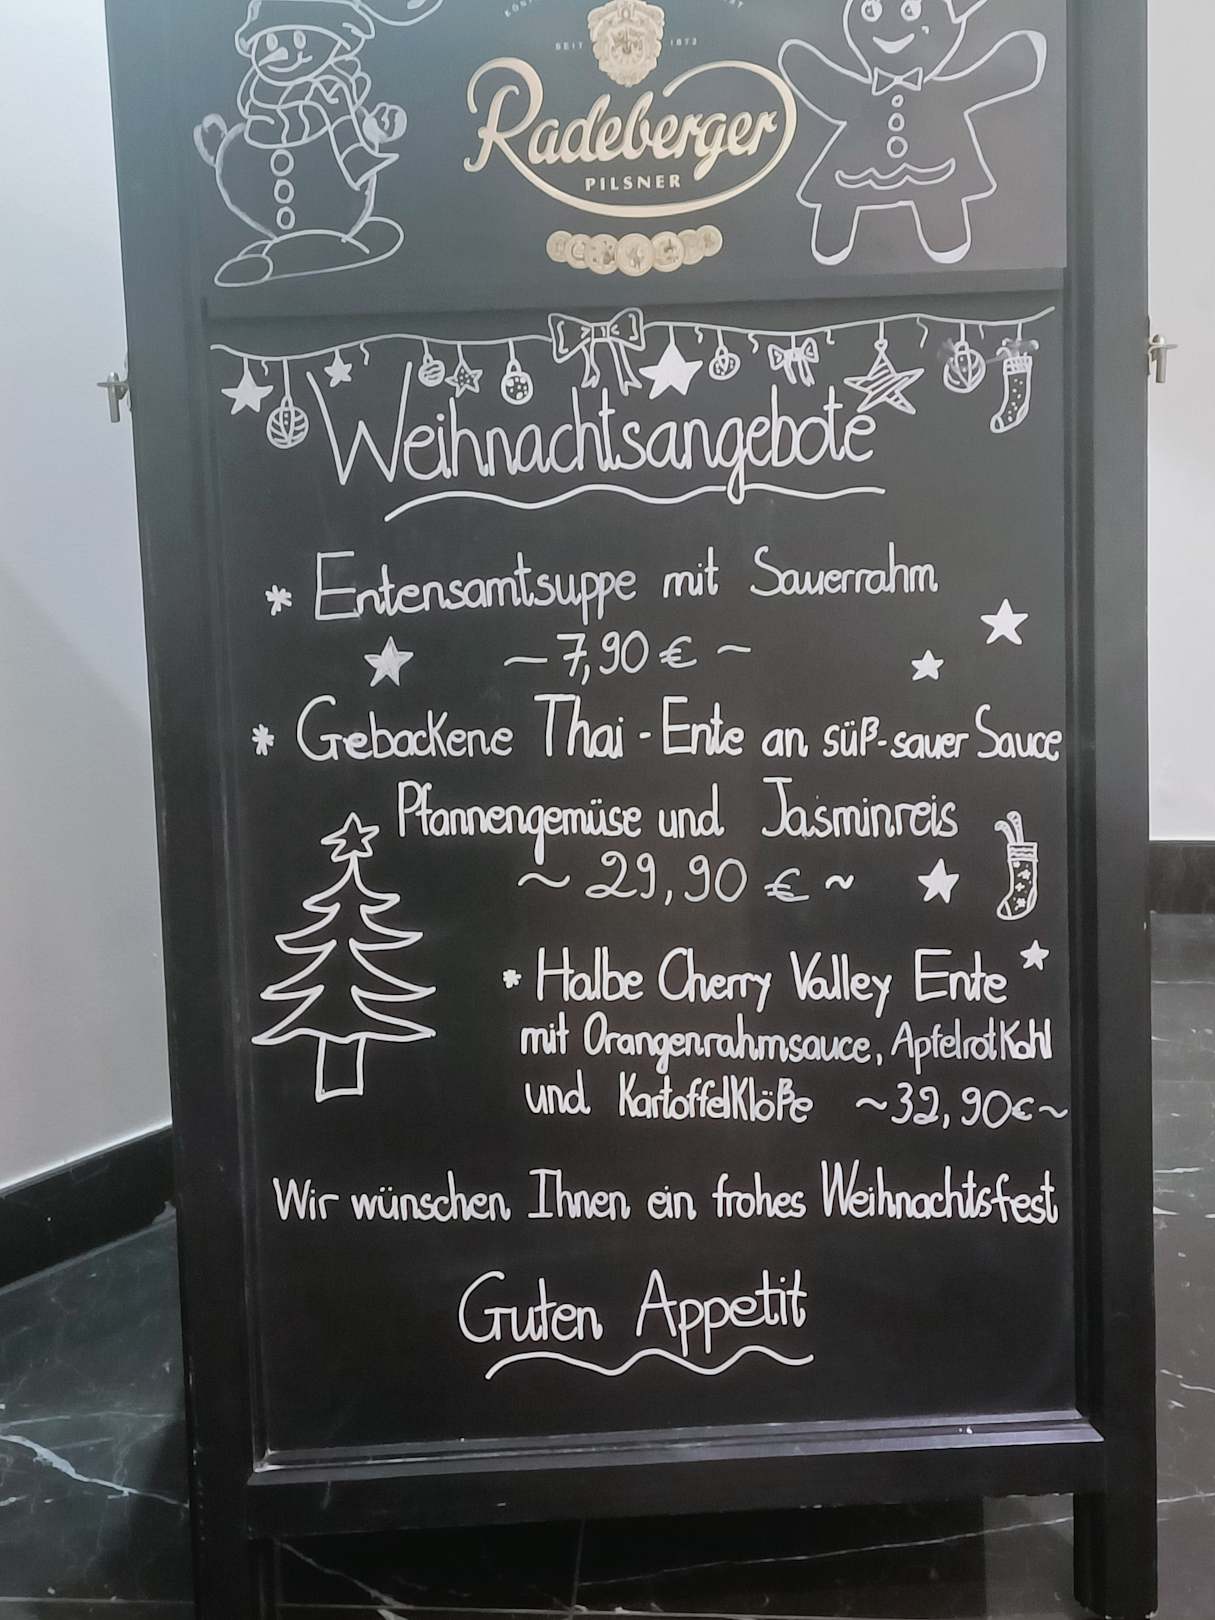 SEIT 1872
Radeberger
PILSNER
Weihnachtsangebote
* Entensamtsuppe mit Sauerrahm
~ 7,90 € ~
* Gebackene Thai-Ente an süß-sauer Sauce
Pfannengemüse und Jasminreis
~ 29,90 € ~
* Halbe Cherry Valley Ente
mit Orangenrahmsauce, Apfelrotkohl
und Kartoffelklöße ~32,90€~
Wir wünschen Ihnen ein frohes Weihnachtsfest
Guten Appetit